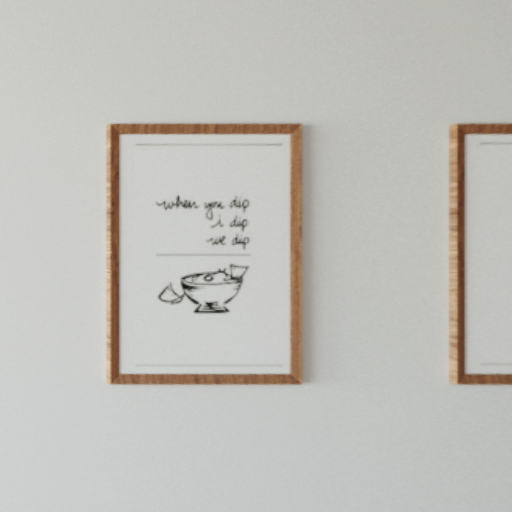 when you dip
i dip
we dip